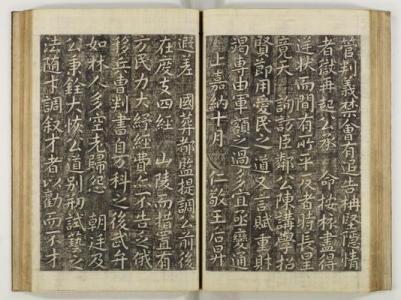 管判義禁會有追告構堅隱情
者獄再起公丞 命按杯盡得
逆狀而聞有所平反者時長星
竟天 詢訪臣鄰公陳講學招
賢節用愛民之道又言賦重財
竭專由軍額之過多宜亟變通
上嘉納十月 仁敬王后昇
遐差 國葬都監提調公前後
在度支四經 山陵而措置有
方民力大紓經費亦不告乏俄
移兵曹判書自万科之後武弁
如林人多空老歸怨 朝廷及
公秉銓大恢公道別初試藝之
法隨才調敍才者以勸而不才